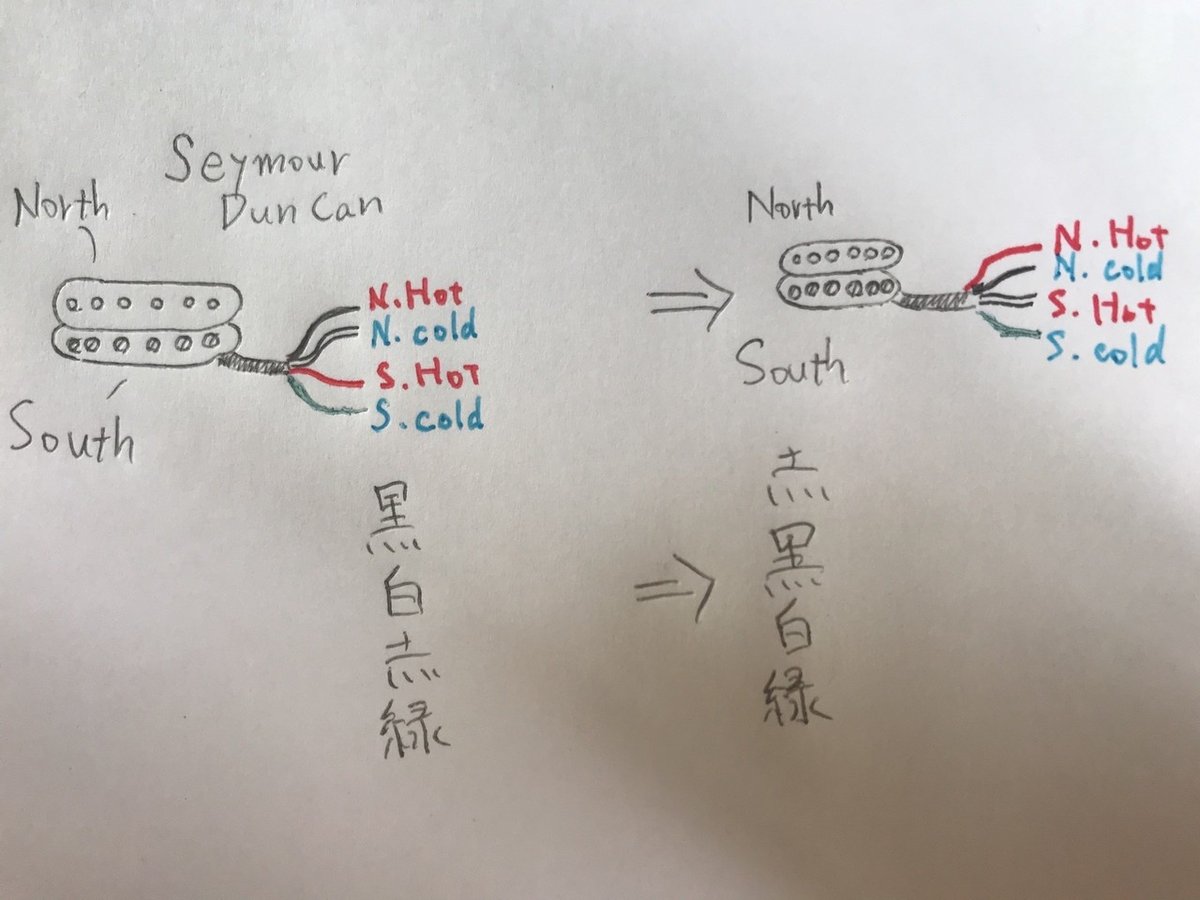 Seymour
Duncan
North
South
N.Hot
N.cold
S.Hot
S.cold
黒
白
赤
緑
North
South
N.Hot
N.cold
S.Hot
S.cold
赤
黒
白
緑